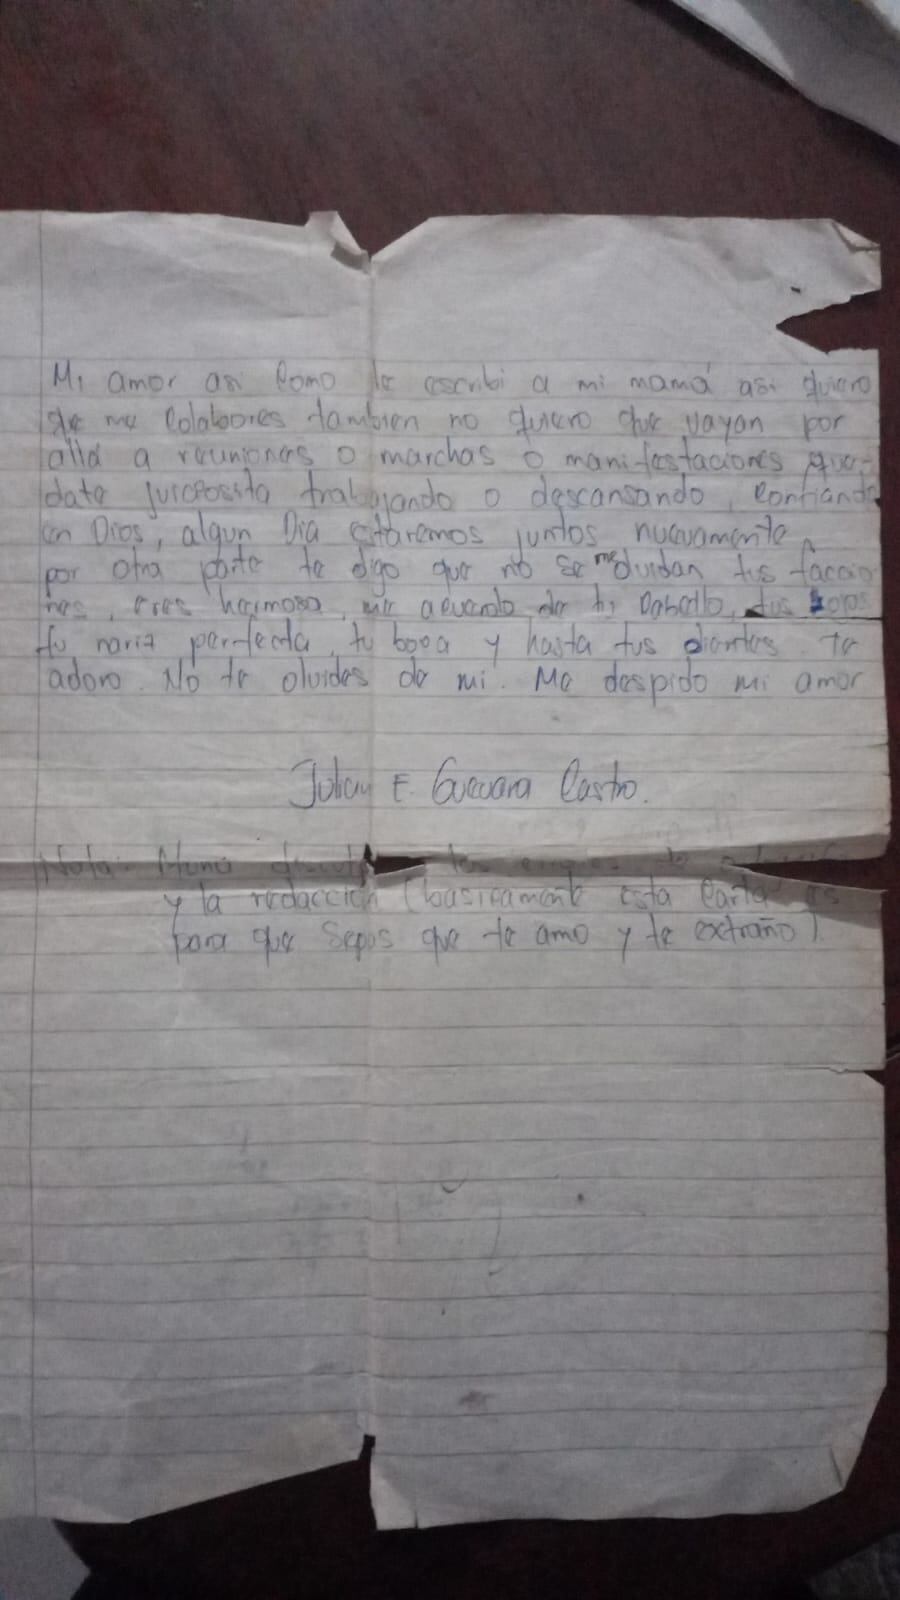 Mi amor asi como le escribi a mi mamá asi quiero
qe me colabores tambien no quiero que vayan por
alla a reuniones o marchas o manifestaciones que-
date juiciosita trabajando o descansando, confiando
en Dios, algun Dia estaremos juntos nuevamente,
por otra parte te digo que no se me olvidan tus faccio
nes, eres hermosa, me acuerdo de tu cabello, tus
tu nariz perfecta, tu boca y hasta tus dientes. te
adoro. No te olvides de mi. Me despido mi amor
Julian E. Guevara Castro.
Nota:
y la redacción (basicamente esta carta es
para que sepas que te amo y te extraño).